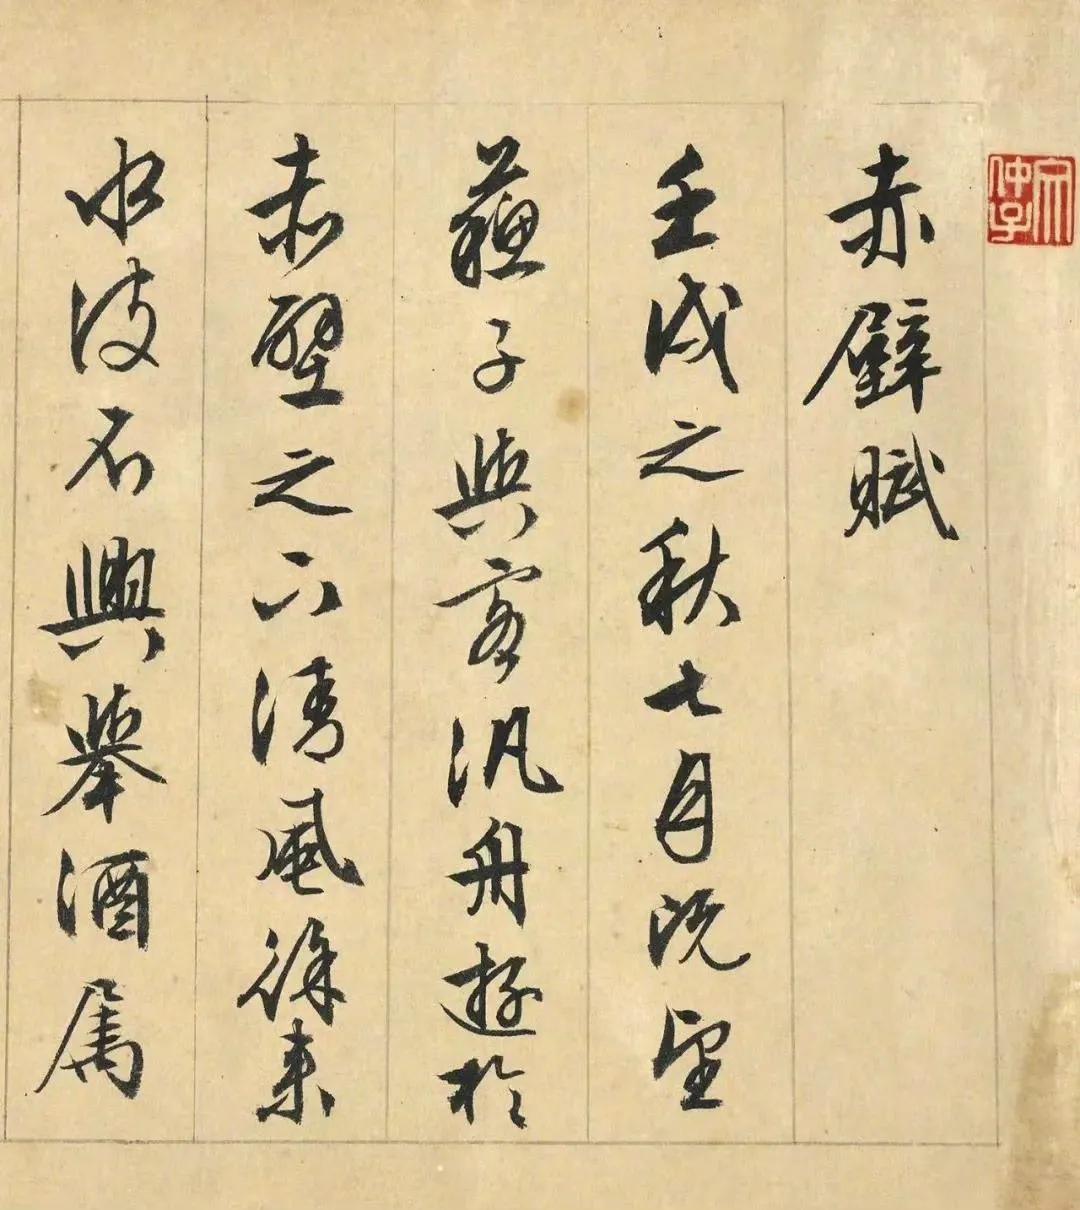 赤壁賦
壬戌之秋七月既望
蘇子與客汎舟遊於
赤壁之下清風徐來
水波不興舉酒属